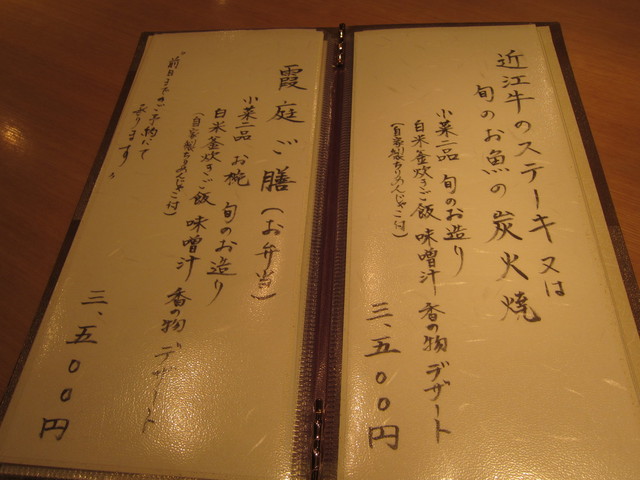 近江牛のステーキ又は
旬のお魚の炭火焼
小菜二品 旬のお造り
白米釜炊きご飯 味噌汁 香の物 デザート
(自家製ちりめんじゃこ付)
三、五〇〇円
霞庭ご膳(お弁当)
小菜二品 お椀 旬のお造り
白米釜炊きご飯 味噌汁 香の物 デザート
(自家製ちりめんじゃこ付)
三、五〇〇円
"前日までのご予約にて
承ります"